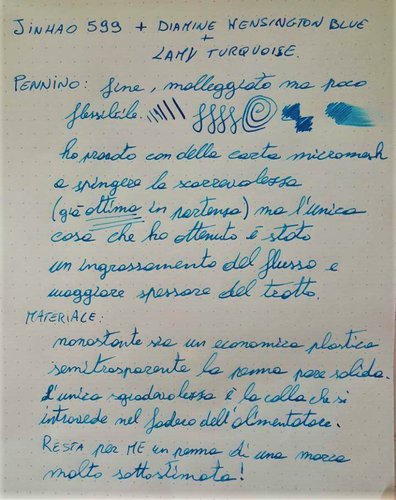 JINHAO 599 + DIAMINE KENSINGTON BLUE
+
LAMY TURQUOISE.
PENNINO: fine, molleggiato ma poco
flessibile.
ho provato con della carta micromesh
a spingere la scorrevolezza
(già ottima in partenza) ma l'unica
cosa che ho ottenuto è stato
un ingrossamento del flusso e
maggiore spessore del tratto.
MATERIALE:
nonostante sia un economica plastica
semitrasparente la penna pare solida.
L'unica sgradevolezza è la colla che si
intravede nel fodero dell'alimentatore.
RESTA per ME un penna di una marca
molto sottostimata!